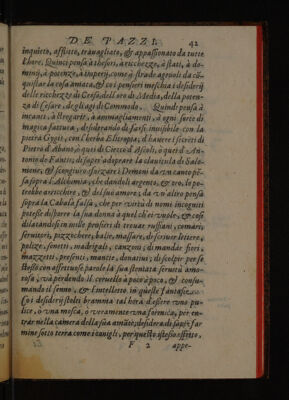 DE PAZZI. 42
inquieto, afflitto, trauagliato, & appassionato da tutte
l'hore. Quinci pensa à thesori, à ricchezze, à stati, à do-
minij, à potenze, à imperij, come à strade ageuoli da cō-
quistar la cosa amata, & coi pensieri meschia i desiderij
delle ricchezze di Creso, dell'oro di Mida, della poten-
za di Cesare, degli agi di Commodo. Quindi pensa à
incanti, à stregarie, à ammagliamenti, à ogni sorte di
magica fattura, desiderando di farsi inuisibile con la
pietra Gigis, con l'herba Elitropia; d'hauere i secreti di
Pietro d'Abano, ò quei di Ciecco d'Ascoli, ò quei d'An-
tonio de Fantis; di saper adoprare la clauicula di Salo-
mone, & scongiurar, & sforzare i Demoni da vn canto pē-
sa sopra l'Alchimia, che dandoli argento, & oro, lo po-
trebbe aricchire, & del suo amore; da vn altro pensa
sopra la Cabala falsa, che per virtù di nomi incogniti
potesse disporre la sua donna à quel ch'ei vuole, & così
dilatandosi in mille pensieri di trouar ruffiani, comari,
fruttieri, pizzochere, balie, massare, di scriuer lettere,
polize, sonetti, madrigali, canzoni; di mandar fiori,
mazzetti, presenti, mancie, donatiui; di scolpir per se
stesso con affettuose parole la sua stentata seruitù amo-
rosa, và perdendo il ceruello à poco à poco, & consu-
mando il senno, & l'intelletto in queste fantasie.
Coi desiderij stolti bramma tal hora d'essere vno pu-
lice, ò vna mosca, ò veramente vna formica, per en-
trar nella camera della sua amāte; desidera di saper far
mine sotto terra come i conigli, per questo istesso effetto,
F 2 appe-